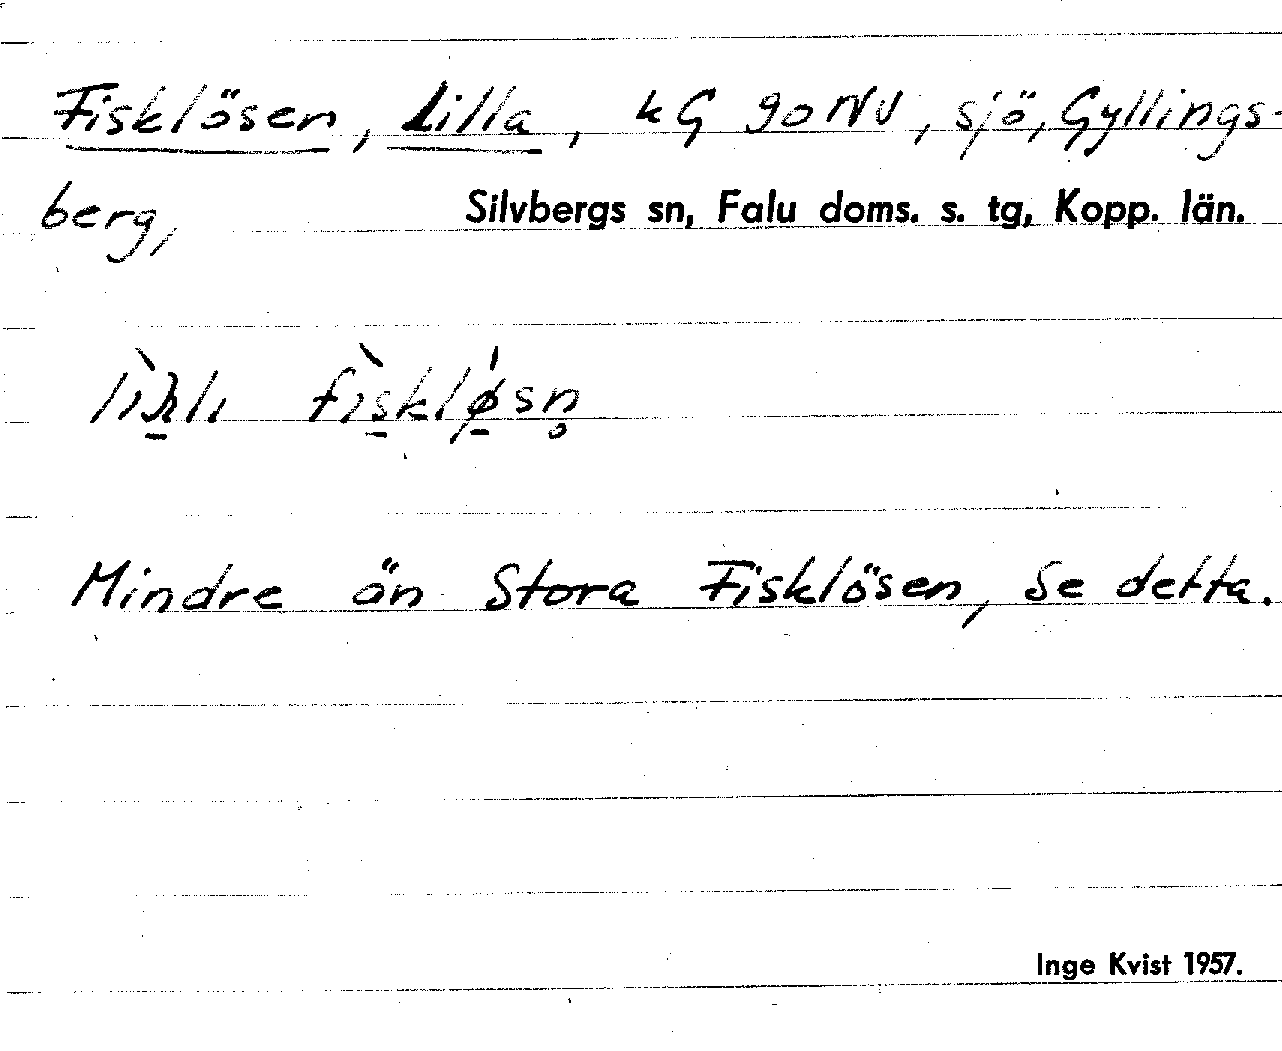 Fisklösen, Lilla, kG 90 NV, sjö, Gyllings-
berg,
Silvbergs sn, Falu doms. s. tg, Kopp. län.
Mindre än Stora Fisklösen, Se detta.
Inge Kvist 1957.